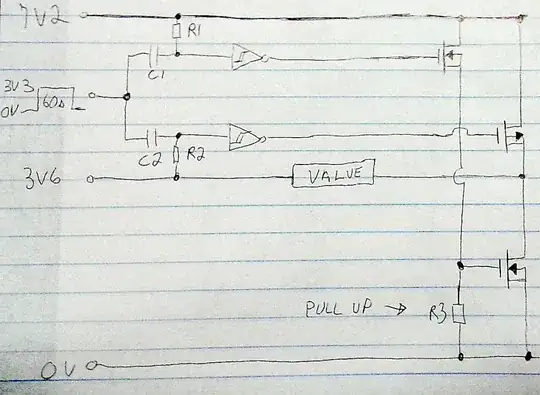 7V2
R1
C1
3V3
60Ω
0V
C2
R2
3V6
VALVE
PULL UP → R3
0V